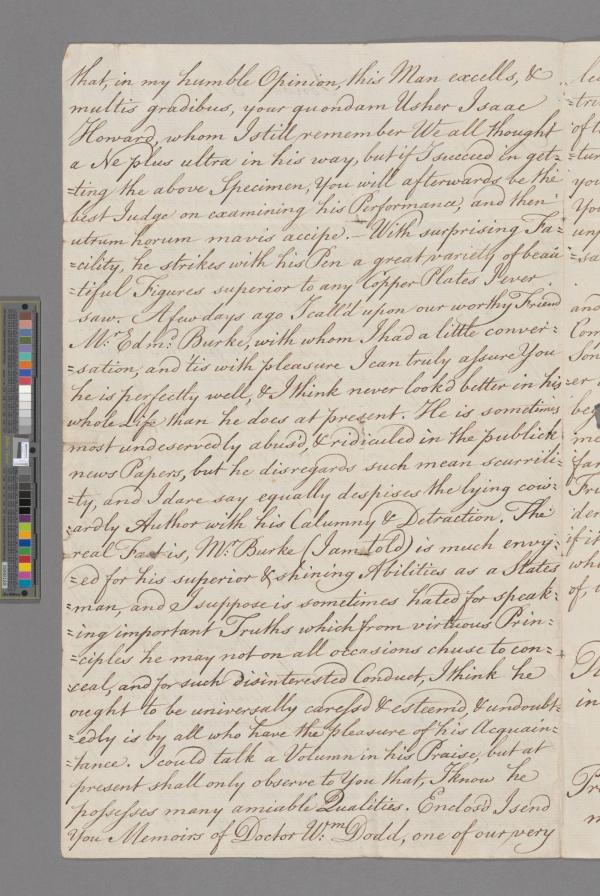 that, in my humble Opinion, this Man excells, &
multis gradibus, your quondam Usher Isaac
Howard, whom I still remember We all thought
a Ne plus ultra in his way, but if I succeed in get-
=ting the above Specimen, You will afterwards be the
best Judge on examining his Performance, and then
utrum horum mavis accipe. – With surprising Fa=
=cility, he strikes with his Pen a great variety of beau
=tiful Figures superior to any Copper Plates I ever
saw. A few days ago I call'd upon our worthy Friend
Mr. Edmd. Burke, with whom I had a little conver-
=sation, and 'tis with pleasure I can truly assure You
he is perfectly well, & I think never look'd better in his
whole Life than he does at present. He is sometimes
most undeservedly abus'd, & ridiculed in the publick
news Papers, but he disregards such mean scurrili-
=ty, and I dare say equally despises the lying cow-
=ardly Author with his Calumny & Detraction. The
real Fact is, Mr. Burke (I am told) is much envy-
=ed for his superior & shining Abilities as a States
=man, and I suppose is sometimes hated for speak-
=ing important Truths which from virtuous Prin-
=ciples he may not on all occasions chuse to con-
=ceal, and for such disinterested Conduct, I think he
ought to be universally caress'd & esteem'd, & undoubt-
=edly is by all who have the pleasure of his Acquain-
=tance. I could talk a Volumn in his Praise, but at
present shall only observe to You that, I know he
possesses many amiable Qualities. Enclos'd I send
You Memoirs of Doctor Wm. Dodd, one of our very